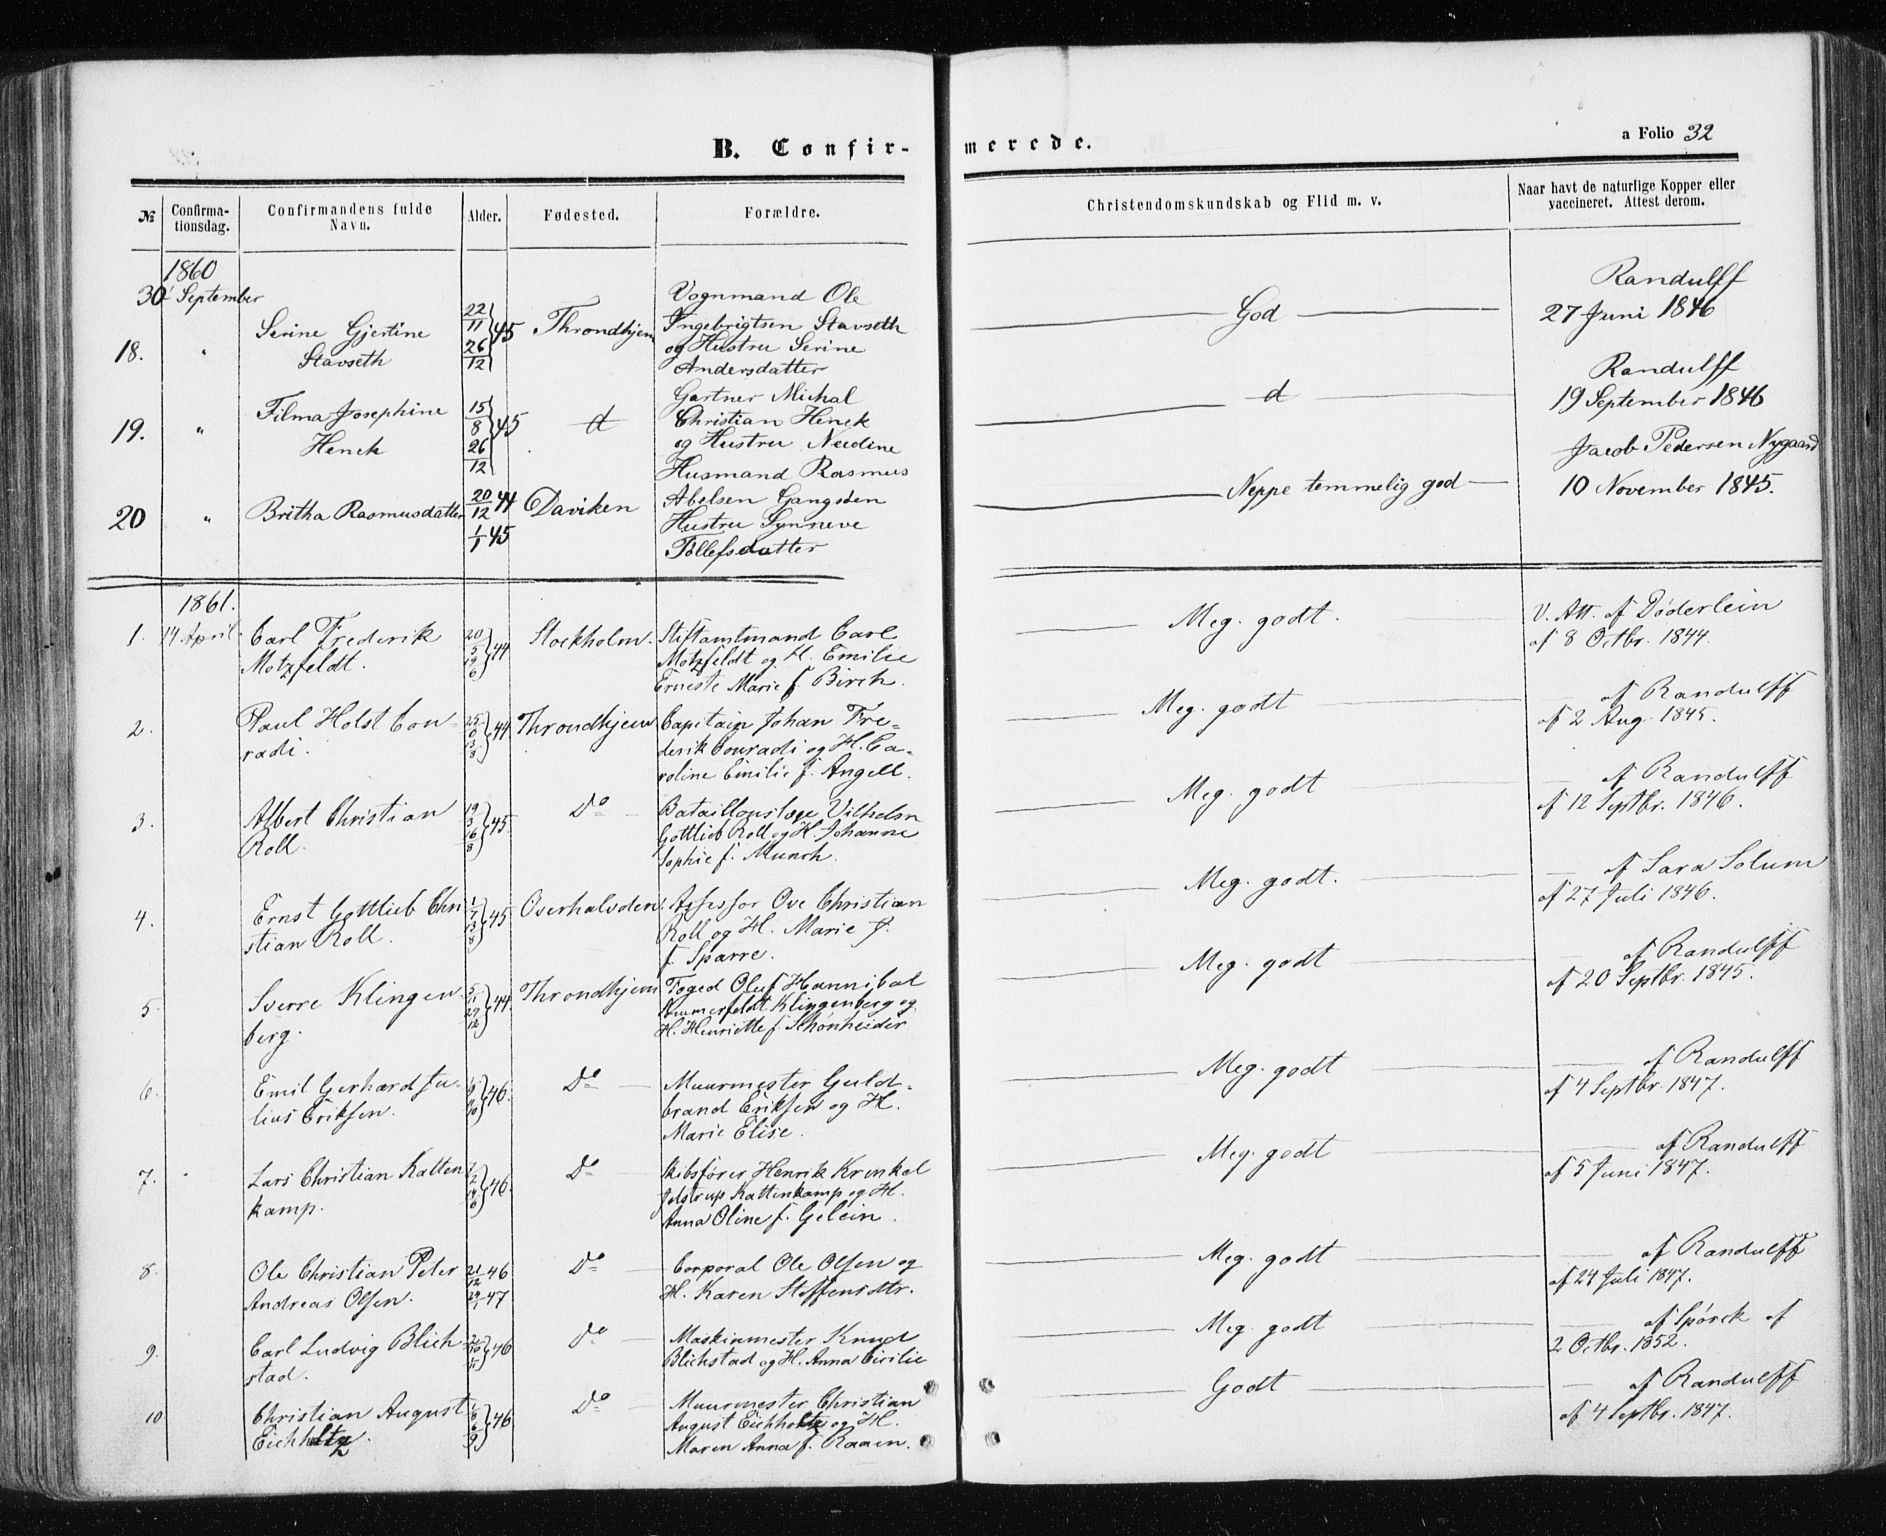 B. Confir-
merede.
a Folio 32
№ Confirma-tionsdag. Confirmandens fulde Navn. Alder. Fødested. Forældre. Christendomskundskab og Flid m. v. Naar havt de naturlige Kopper eller vaccineret. Attest derom.
1860
30 September
18. " Serine Gjertine
Stavseth
22/11 26/12 } 45
Throndhjem
Vognmand Ole
Ingebrigtsen Stavseth
og Hustru Serine
Andersdatter
God
Randulff
27 Juni 1846
19. " Filma Josephine
Henck
15/8 26/12 } 45
d
Gartner Michal
Christian Henck
og Hustru Nudine
d
Randulff
19 September 1846
20 " Britha Rasmusdatter
20/12 44
1/1 45
Daviken
Husmand Rasmus
Abelsen Gangsøen
Hustru Synneve
Tollefsdatter
Neppe temmelig god
Jacob Pedersen Nygaard
10 November 1845.
1861.
1. 14 April. Carl Frederik
Motzfeldt.
20/5 19/6 } 44
Stockholm.
Stiftamtmand Carl
Motzfeldt og H. Emilie
Erneste Marie f. Birch.
Meg. godt.
V. Att. af Døderlein
af 8 Octbr. 1844.
2. Paul Holst Con-
radi.
44
Throndhjem
Capitain Johan Fre-
derik Conradi og H. Ca-
roline Emilie f. Angell.
Meg. godt
af Randulff
af 2 Aug. 1845.
3. Albert Christian
Roll.
45.
Do
Bataillonslæge Vilhelm
Gottlieb Roll og H. Johanne
Sophie f. Munch.
Meg. godt
af Randulff
af 12 Septbr. 1846.
4. Ernst Gottlieb Chri
stian Roll.
1/7 13/8 } 45.
Overhalvden.
Assessor Ove Christian
Roll og H. Marie F.
f. Sparre.
Meg. godt.
af Sara Solum
af 27 Juli 1846.
5. Sverre Klingen
berg.
5/11 27/12 } 44
Throndhjem
Foged Oluf Hannibal
Sommerfeldt Klingenberg og
H. Henriette f. Schønheider
Meg. godt
af Randulff
af 20 Septbr. 1845.
6. Emil Gerhard Ju-
lius Eriksen.
46.
Do
Muurmester Guld-
brand Eriksen og H.
Marie Elise.
Meg. godt
af Randulff
af 4 Septbr. 1847.
7. Lars Christian Katten
kamp.
46.
Do
Skibsfører Henrik Krenkel
Jelstrup Kattenkamp og H.
Anna Oline f. Gelein.
Meg. godt
af Randulff
af 5 Juni 1847.
8. Ole Christian Peter
Andreas Olsen.
21/12 46
47
Do
Corporal Ole Olsen og
H. Karen Steffensdtr.
Meg. godt
af Randulff
af 24 Juli 1847.
9. Carl Ludvig Blich-
stad.
46
Do
Maskinmester Knud
Blichstad og H. Anna Cicilie
Meg. godt
af Spørck af
2 Octbr. 1852.
10 Christian August
Eichholtz.
46
Do
Muurmester Christian
August Eichholtz og H.
Maren Anna f. Raaen.
Godt
af Randulff
af 4 Septbr. 1847.